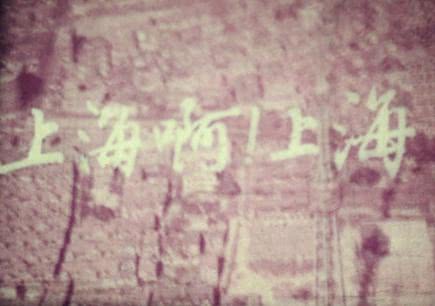 上海啊!上海